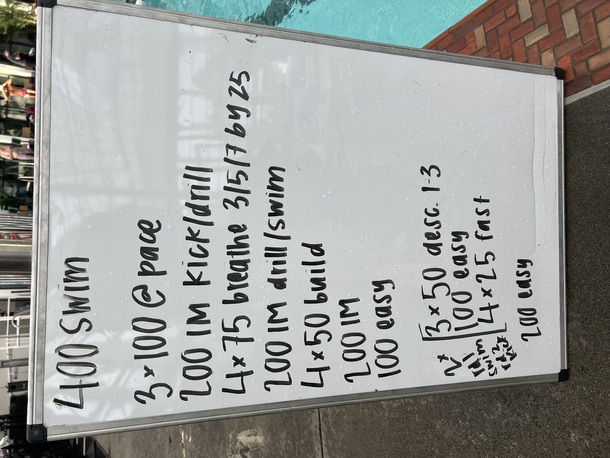 400 Swim
3x100 @ pace
200 IM kick/drill
4x75 breathe 3/5/7 by 25
200 IM drill/swim
4x50 build
200 IM
100 easy
2x
3x50 desc. 1-3
100 easy
4x25 fast
swim
200 easy